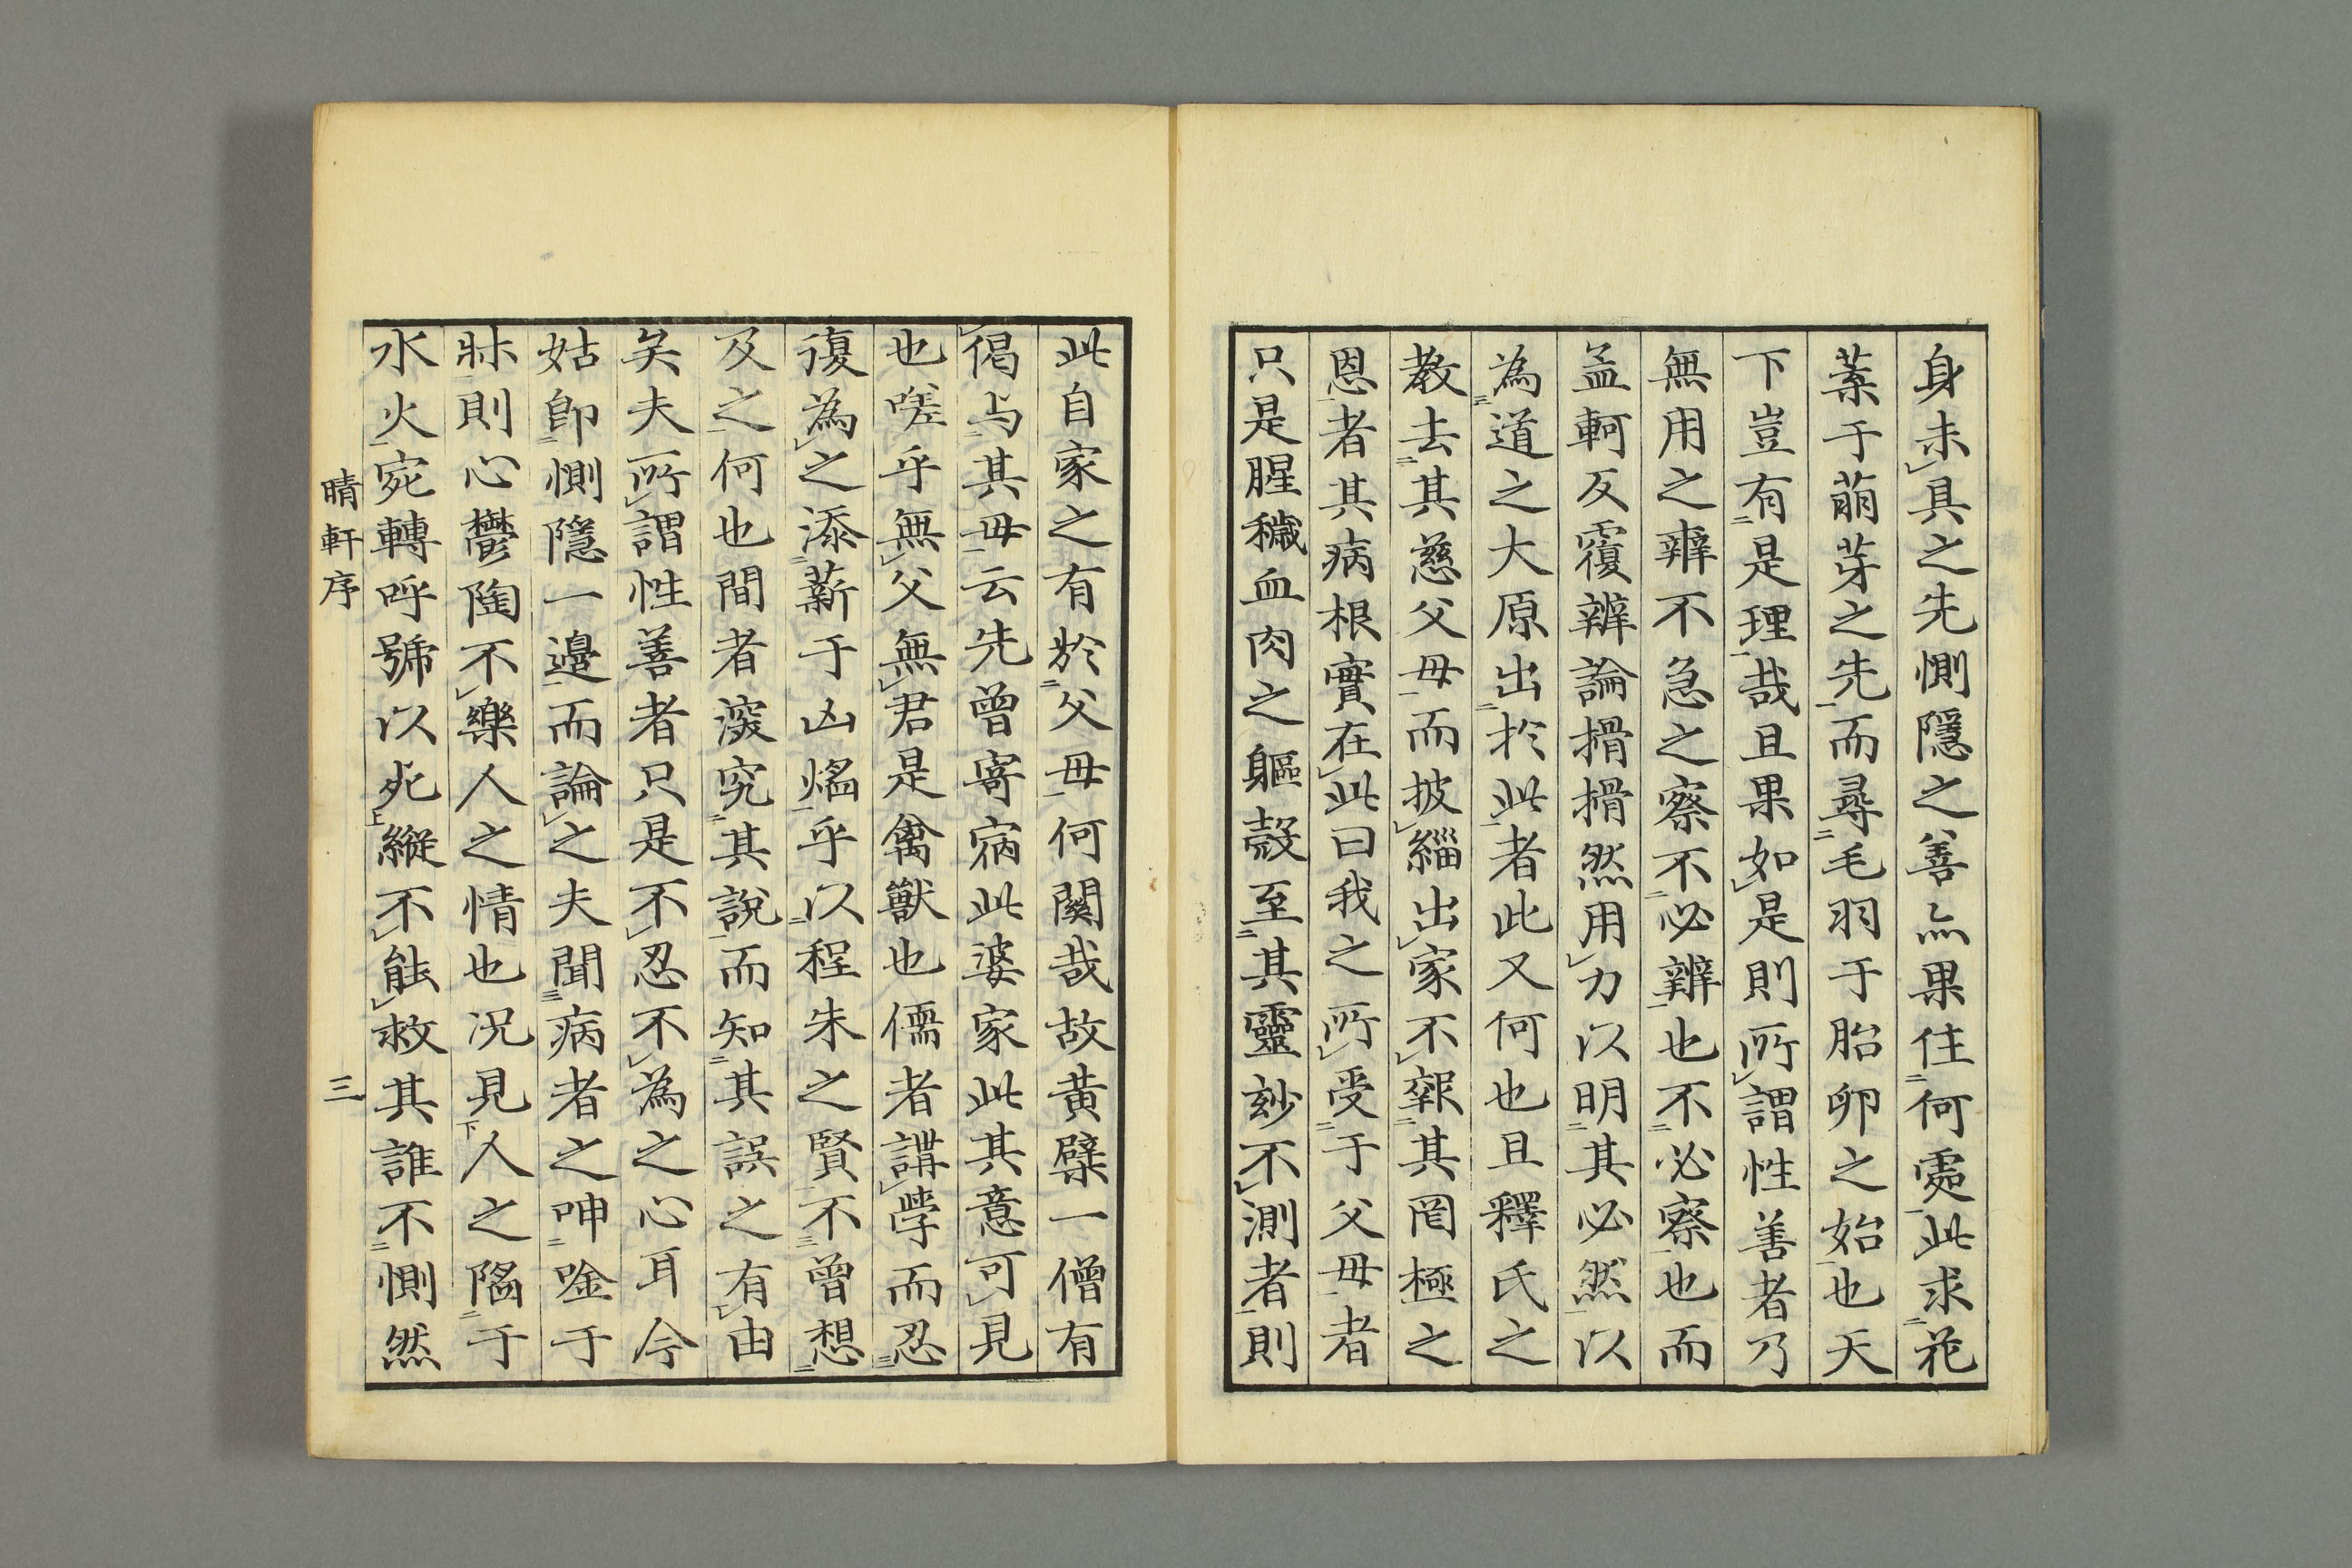 身未具之先惻隱之善無果住何處此求花
蘂于萠芽之先而尋毛羽于胎卵之始也天
下豈有是理哉且果如是則所謂性善者乃
無用之辨不急之察不必辨也不必察也而
孟軻反覆辨論搰搰然用力以明其必然以
為道之大原出於此者此又何也且釋氏之
教去其慈父母而披緇出家不報其罔極之
恩者其病根實在此曰我之所受于父母者
只是腥穢血肉之軀殼至其靈玅不測者則
此自家之有於父母何關哉故黄檗一僧有
偈与其母云先曾寄宿此婆家此其意可見
也嗟乎無父無君是禽獸也儒者講學而忍
復為之添薪于凶熖乎以程朱之賢不曾想
及之何也間者深究其說而知其誤之有由
矣夫所謂性善者只是不忍不為之心耳今
姑卽惻隱一邊而論之夫聞病者之呻唫于
牀則心鬱陶不樂人之情也况見人之陷于
水火宛轉呼號以死縱不能救其誰不惻然
晴軒序
三